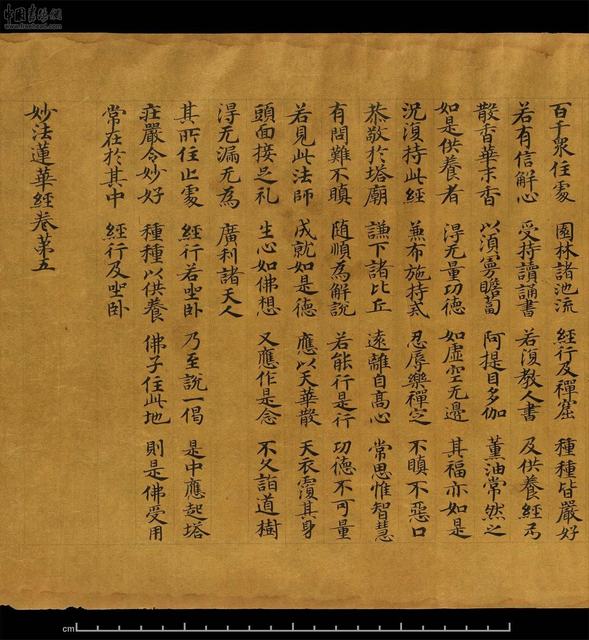 百千衆住處 園林諸池流 經行及禪窟 種種皆嚴好
若有信解心 受持讀誦書 若復教人書 及供養經卷
散香華末香 以須曼瞻蔔 阿提目多伽 薫油常然之
如是供養者 得无量功德 如虛空无邊 其福亦如是
況復持此經 兼布施持戒 忍辱樂禪定 不瞋不惡口
恭敬於塔廟 謙下諸比丘 遠離自高心 常思惟智慧
有問難不瞋 随順為解說 若能行是行 功德不可量
若見此法師 成就如是德 應以天華散 天衣覆其身
頭面接足礼 生心如佛想 又應作是念 不久詣道樹
得无漏无為 廣利諸天人
其所住止處 經行若坐卧 乃至說一偈 是中應起塔
莊嚴令妙好 種種以供養 佛子住此地 則是佛受用
常在於其中 經行及坐卧
妙法蓮華經卷第五
中国书法网
www.freehead.com
cm